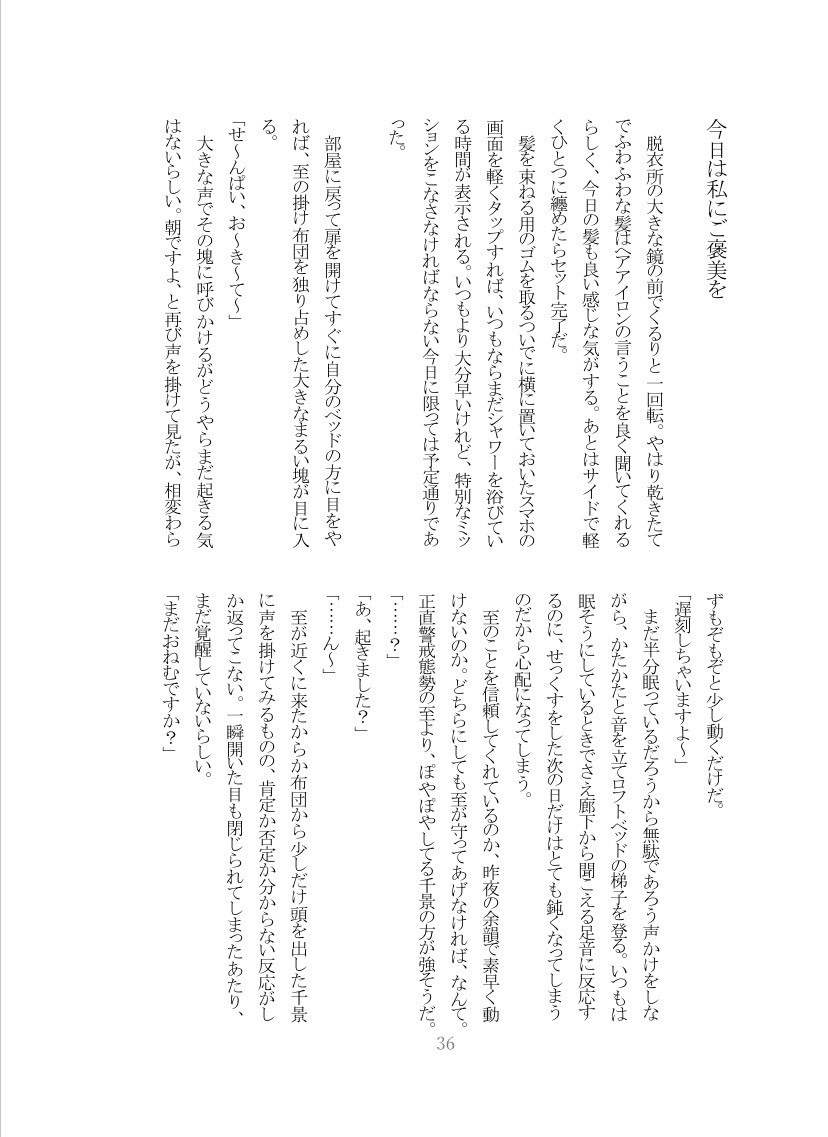 今日は私にご褒美を
　脱衣所の大きな鏡の前でくるりと一回転。やはり乾きたて
でふわふわな髪はヘアアイロンの言うことを良く聞いてくれる
らしく、今日の髪も良い感じな気がする。あとはサイドで軽
くひとつに纏めたらセット完了だ。
　髪を束ねる用のゴムを取るついでに横に置いておいたスマホの
画面を軽くタップすれば、いつもならまだシャワーを浴びてい
る時間が表示される。いつもより大分早いけれど、特別なミッ
ションをこなさなければならない今日に限っては予定通りであ
った。
　部屋に戻って扉を開けてすぐに自分のベッドの方に目をや
れば、至の掛け布団を独り占めした大きなまるい塊が目に入
る。
「せ〜んぱい、お〜き〜て〜」
　大きな声でその塊に呼びかけるがどうやらまだ起きる気
はないらしい。朝ですよ、と再び声を掛けて見たが、相変わら
ずもぞもぞと少し動くだけだ。
「遅刻しちゃいますよ〜」
　まだ半分眠っているだろうから無駄であろう声かけをしな
がら、かたかたと音を立てロフトベッドの梯子を登る。いつもは
眠そうにしているときでさえ廊下から聞こえる足音に反応す
るのに、せっくすをした次の日だけはとても鈍くなってしまう
のだから心配になってしまう。
　至のことを信頼してくれているのか、昨夜の余韻で素早く動
けないのか。どちらにしても至が守ってあげなければ、なんて。
正直警戒態勢の至より、ぽやぽやしてる千景の方が強そうだ。
「……？」
「あ、起きました？」
「……ん〜」
　至が近くに来たからか布団から少しだけ頭を出した千景
に声を掛けてみるものの、肯定か否定か分からない反応がし
か返ってこない。一瞬開いた目も閉じられてしまったあたり、
まだ覚醒していないらしい。
「まだおねむですか？」
36